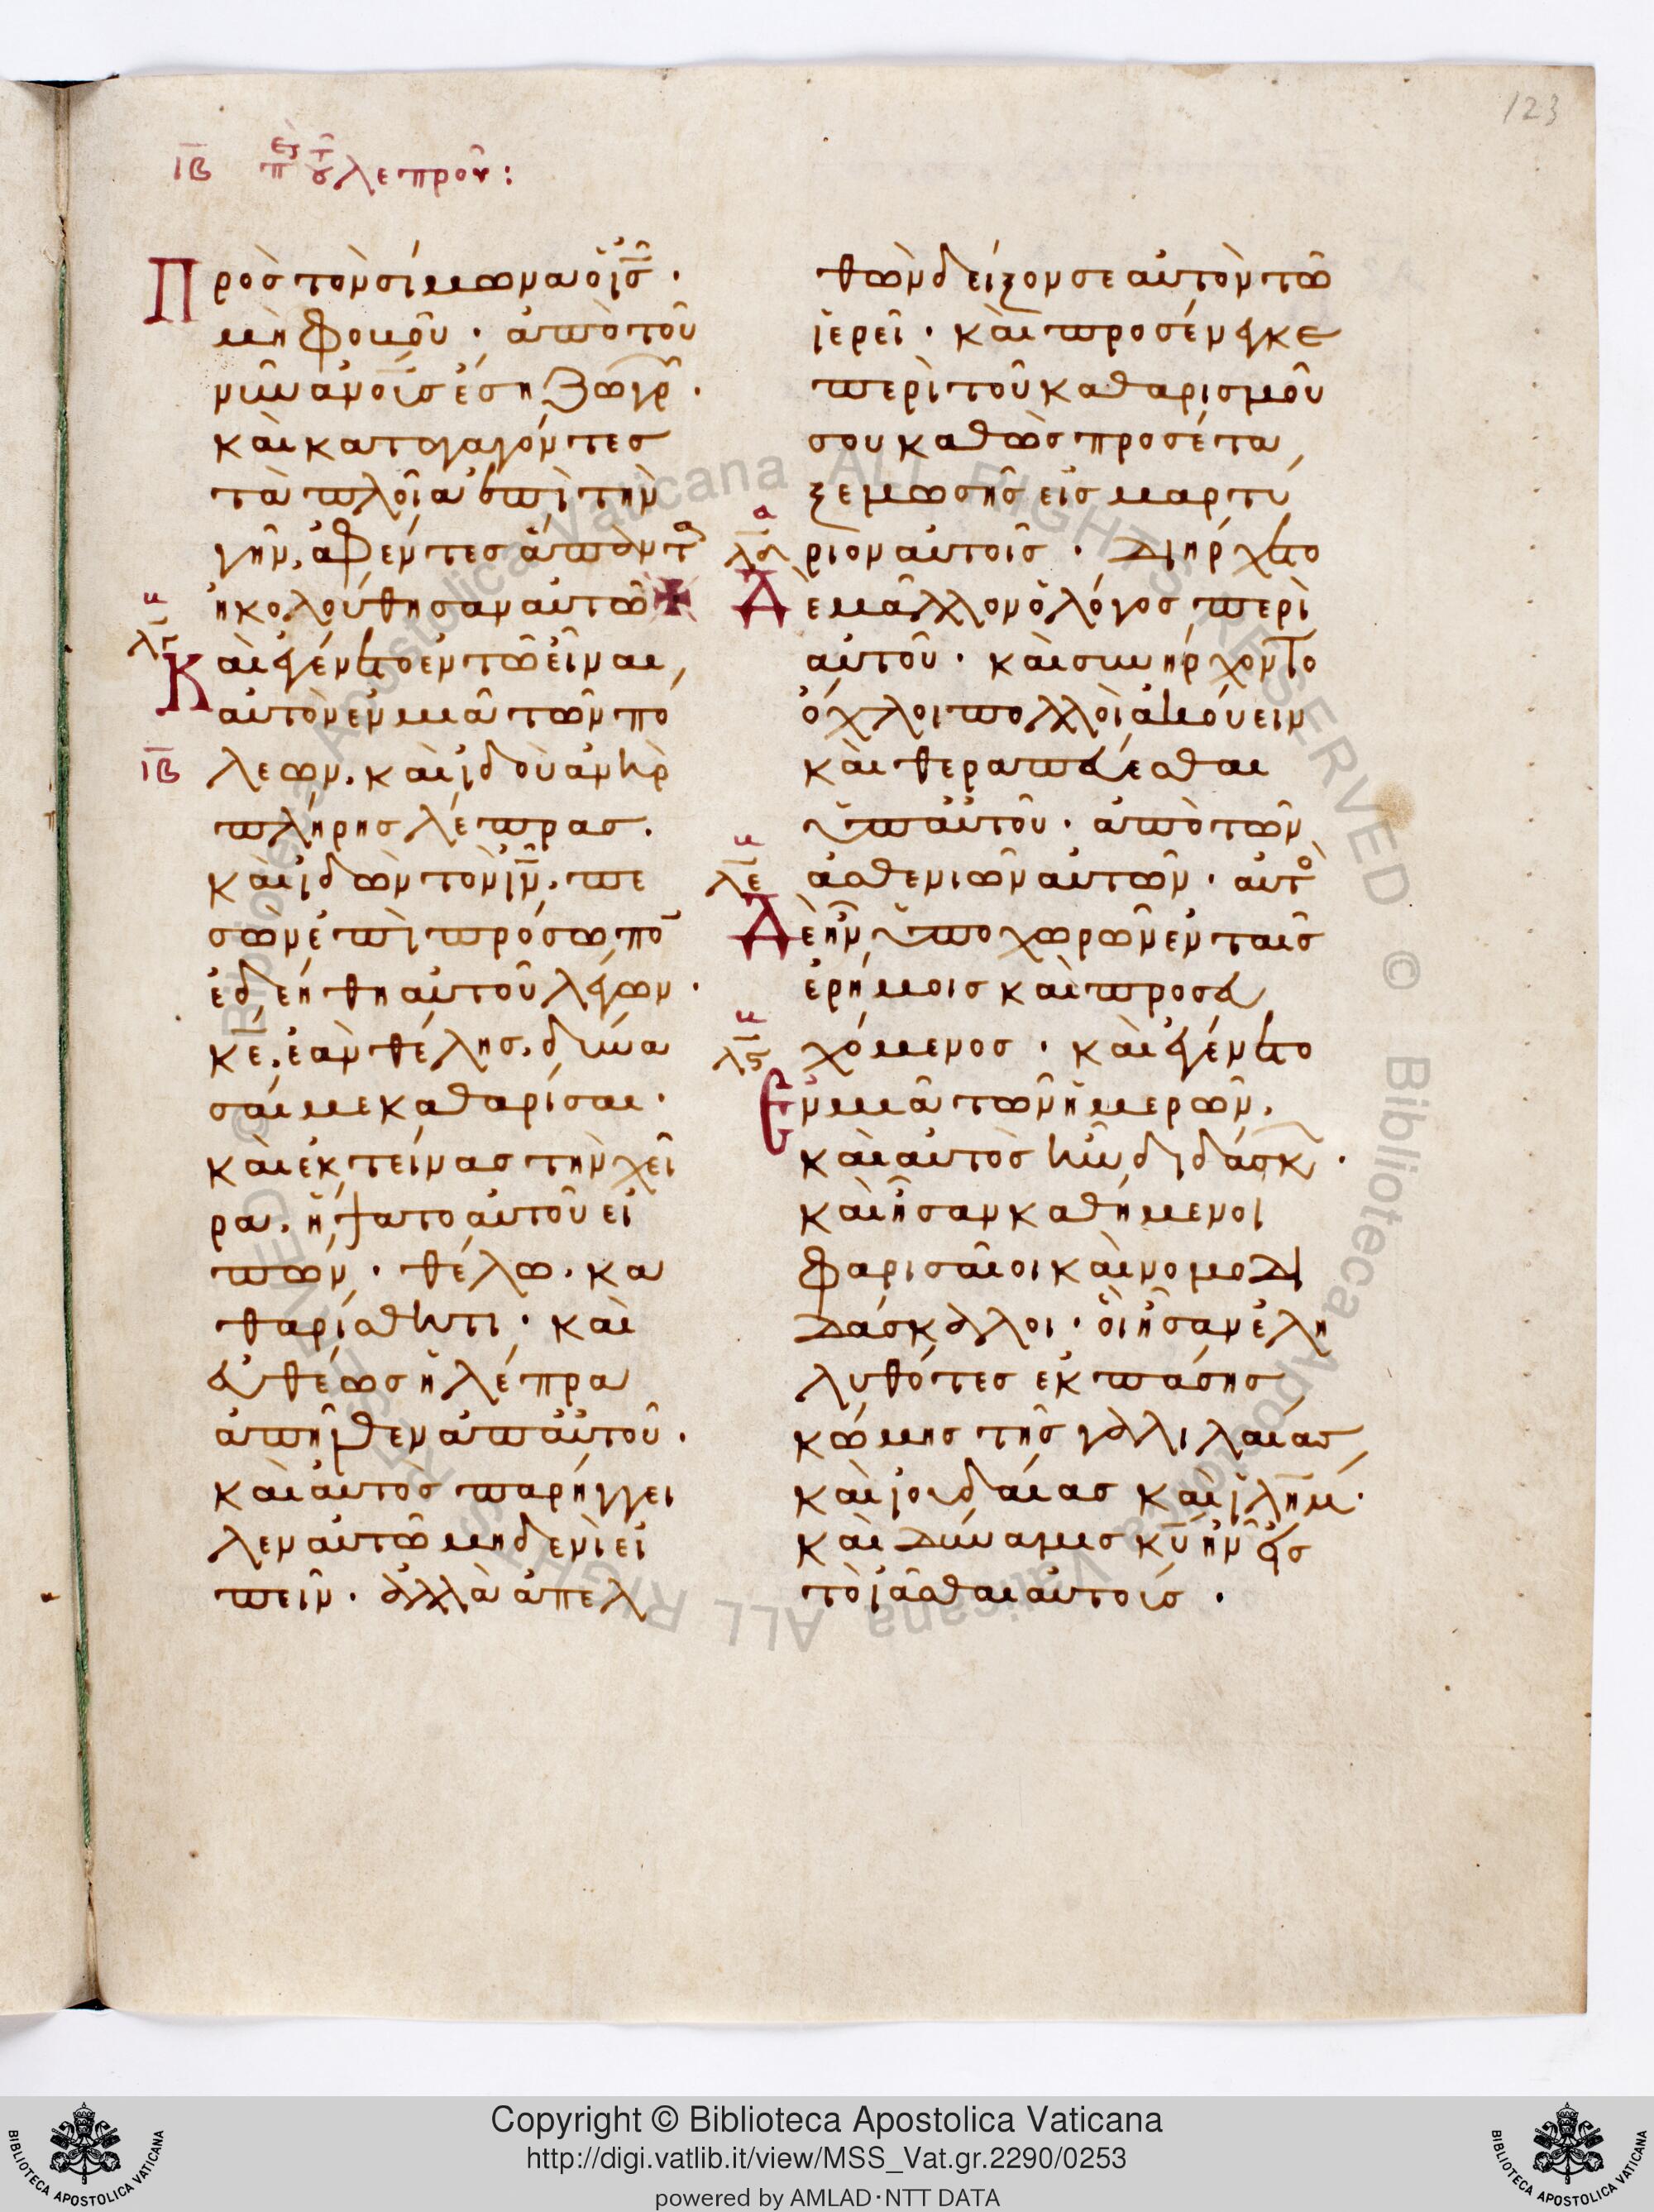 123
ΙΒ περὶ τοῦ λεπροῦ:
Πρὸς τὸν σίμωνα ὁ ις̅ ·
μὴ φοβοῦ · ἀπὸ τοῦ
νῦν ἀνοῦς ἔση ζωγρ ·
καὶ καταγαγόντες
τὰ πλοῖα ἐπὶ τὴν
γῆν, ἀφέντες ἅπαντα
ἠκολούθησαν αὐτῶ
λγ
Καὶ ἐγένετο ἐν τῶ εἶναι
αὐτὸν ἐν μιᾶ τῶν πό
ΙΒ
λεων. καὶ ἰδοὺ ἀνὴρ
πλήρης λέπρας.
καὶ ἰδὼν τὸν ιν̅, πε
σὼν ἐπὶ πρόσωπο
ἐδεήθη αὐτοῦ λέγων ·
κε̅, ἐὰν θέλης, δύνα
σαί με καθαρίσαι ·
καὶ ἐκτείνας τὴν χεῖ
ρα, ἥψατο αὐτοῦ εἰ
πών · θέλω, κα
θαρίσθητι · καὶ
εὐθέως ἡ λέπρα
ἀπῆλθεν ἀπ αὐτοῦ ·
καὶ αὐτὸς παρήγγει
λεν αὐτῶ μηδενὶ εἰ
πεῖν · ἀλλὰ ἀπελ
θὼν δεῖξον σεαυτὸν τῶ
ἱερεῖ · καὶ προσένεγκε
περὶ τοῦ καθαρισμοῦ
σου καθὼς προσέτα
ξε μωσῆς εἰς μαρτύ
λδ
ριον αὐτοῖς · Διήρχετο
Δὲ μᾶλλον ὁ λόγος περὶ
αὐτοῦ · καὶ συνήρχοντο
ὄχλοι πολλοὶ ἀκούειν
καὶ θεραπεύεσθαι
ὑπ αὐτοῦ · ἀπὸ τῶν
λε
ἀσθενιῶν αὐτῶν · αὐτὸ
Δὲ ἦν ὑποχωρῶν ἐν ταῖς
ἐρήμοις καὶ προσευ
λς
χόμενος · καὶ ἐγένετο
Ἐν μιᾶ τῶν ἡμερῶν,
καὶ αὐτὸς ἦν διδάσκ ·
καὶ ἦσαν καθήμενοι
φαρισαῖοι καὶ νομοδι
δάσκαλοι · οἳ ἦσαν ἐλη
λυθότες ἐκ πάσης
κώμης τῆς γαλιλαίας
καὶ ἰουδαίας καὶ ιλημ ·
καὶ δύναμις κυ̅ ἦν εἰς
τὸ ἰᾶσθαι αὐτούς ·
Copyright © Biblioteca Apostolica Vaticana
http://digi.vatlib.it/view/MSS_Vat.gr.2290/0253
powered by AMLAD·NTT DATA
BIBLIOTECA APOSTOLICA VATICANA
BIBLIOTECA APOSTOLICA VATICANA